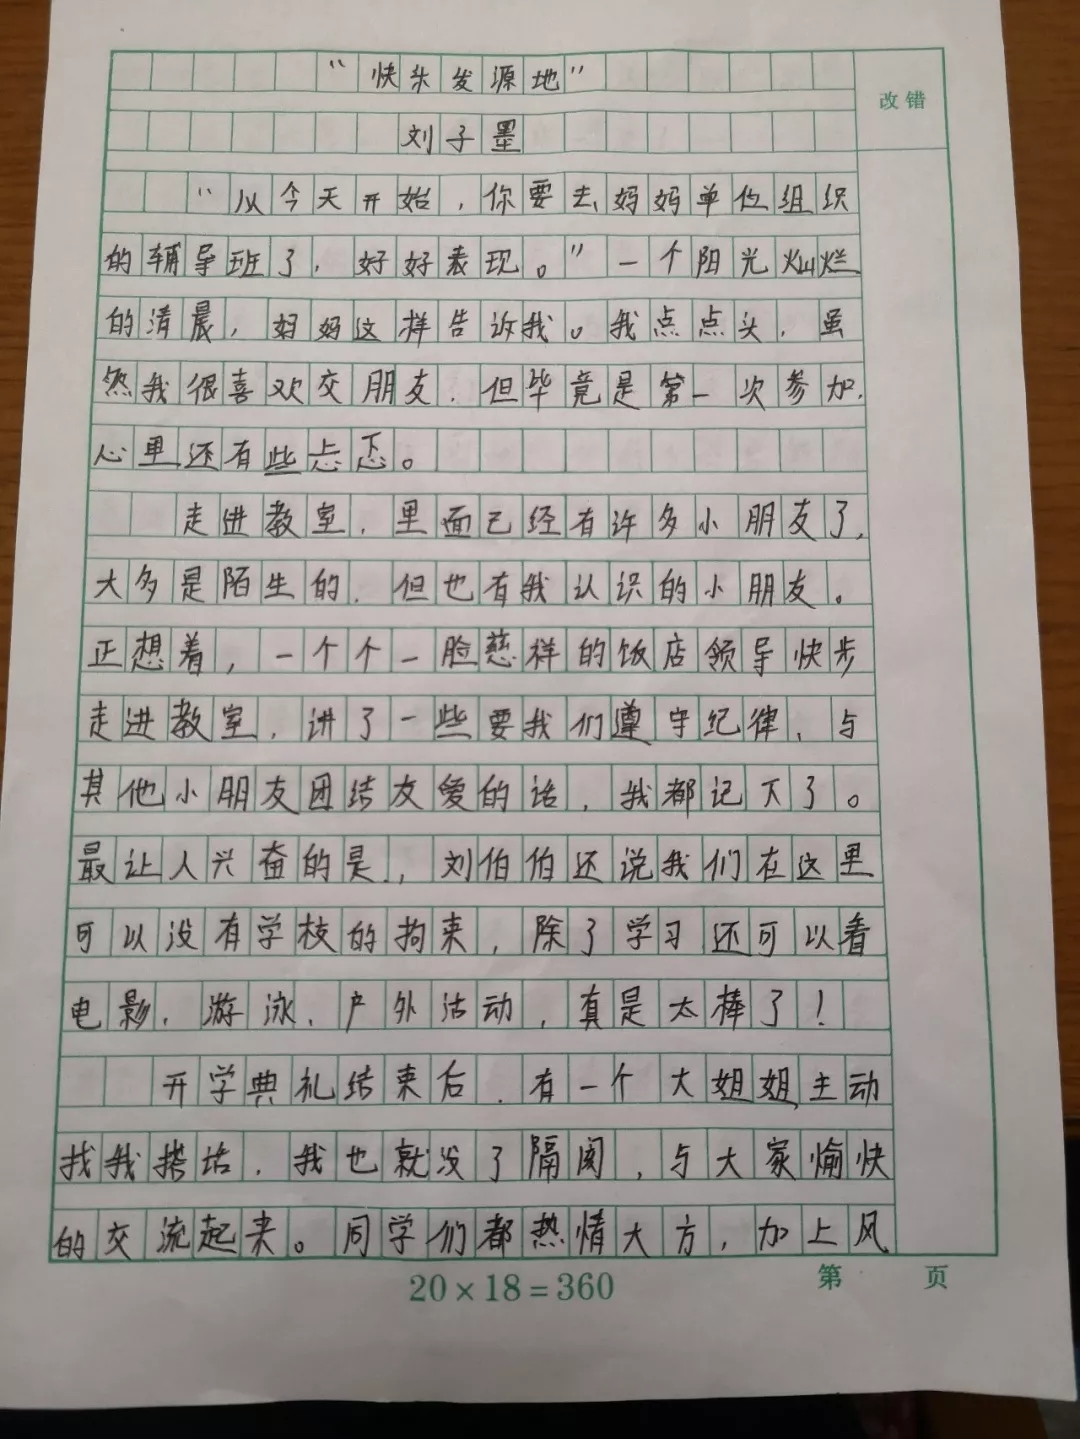 “快乐发源地”
改错
刘子墨
“从今天开始，你要去妈妈单位组织
的辅导班了，好好表现。”一个阳光灿烂
的清晨，妈妈这样告诉我。我点点头，虽
然我很喜欢交朋友，但毕竟是第一次参加，
心里还有些忐忑。
走进教室，里面已经有许多小朋友了，
大多是陌生的，但也有我认识的小朋友。
正想着，一个个一脸慈祥的饭店领导快步
走进教室，讲了一些要我们遵守纪律、与
其他小朋友团结友爱的话，我都记下了。
最让人兴奋的是，刘伯伯还说我们在这里
可以没有学校的拘束，除了学习还可以看
电影、游泳、户外活动，真是太棒了！
开学典礼结束后，有一个大姐姐主动
找我搭话，我也就没了隔阂，与大家愉快
的交流起来。同学们都热情大方，加上风
20×18=360
第 页